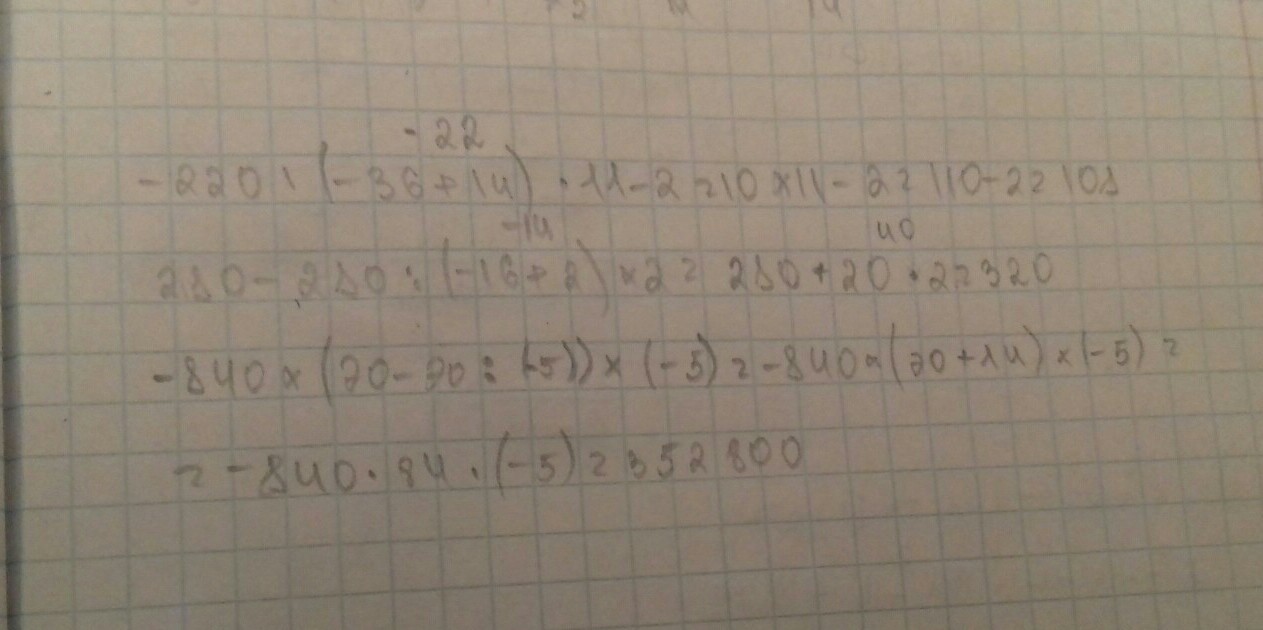 -22
-220 : (-36+14) · 11-2=10×11-2=110-2=108
-14
40
280-280:(-16+2)×2=280+20·2=320
-840×(70-70:(-5))×(-5)=-840×(70+14)×(-5)=
=-840·84·(-5)=352800